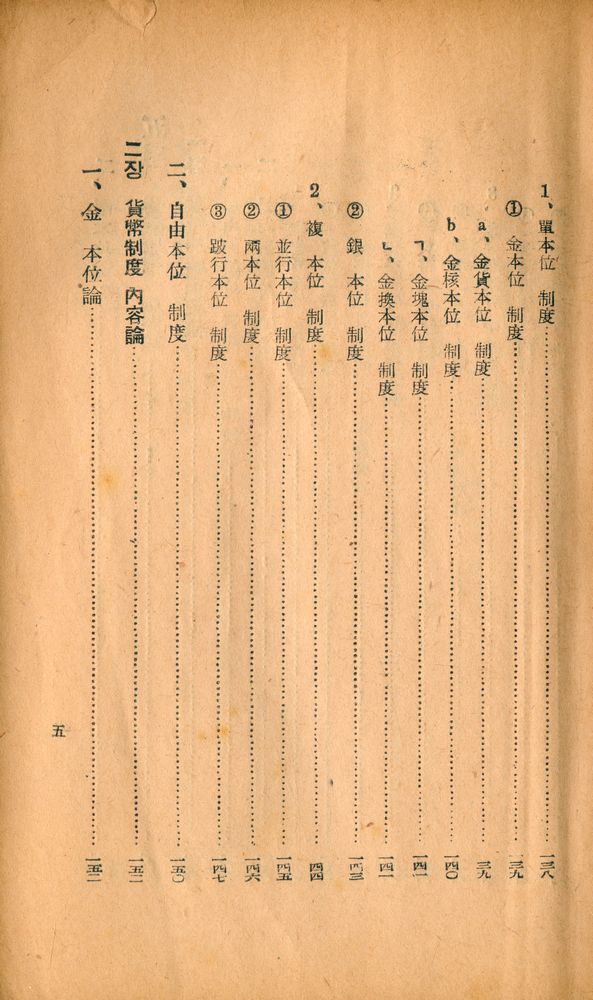 1、單本位 制度……一三八
① 金本位 制度……一三九
a、金貨本位 制度……一三九
b、金核本位 制度……一四〇
ㄱ、金塊本位 制度……一四一
ㄴ、金換本位 制度……一四一
② 銀 本位 制度……一四三
2、複 本位 制度……一四四
① 並行本位 制度……一四五
② 兩本位 制度……一四六
③ 跛行本位 制度……一四七
二、自由本位 制度……一五〇
二장 貨幣制度 內容論……一五二
一、金 本位論……一五二
五